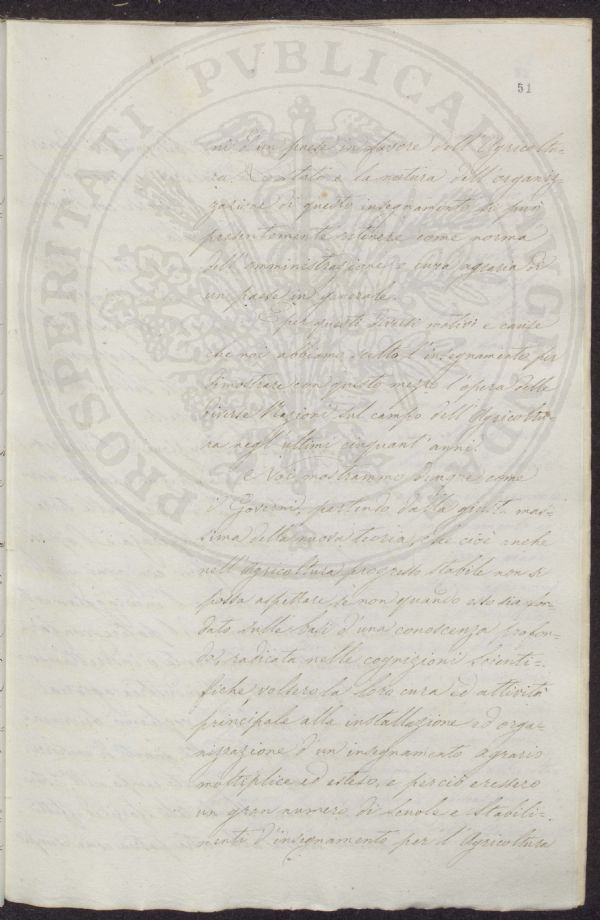 51
PROSPERITATI PVBLICAE AVGENDAE
ni d'un paese in favore dell'Agricoltu=
ra. Lo stato e la natura dell'organiz=
zazione di questo insegnamento si può
presentemente ritenere come norma
dell'amministrazione e cura agraria di
un paese in generale.
E per questi diversi motivi e cause
che noi abbiamo scelto l'insegnamento per
dimostrare con questo mezzo l'opera delle
diverse Nazioni sul campo dell'Agricoltu=
ra negl'ultimi cinquant'anni.
E Noi mostrammo dunque come
i Governi, partendo dalla giusta mas=
sima della nuova teoria, che cioè anche
nell'Agricoltura progresso stabile non si
possa aspettare se non quando esso sia fon=
dato sulle basi d'una conoscenza profon=
da, radicata nelle cognizioni scienti=
fiche volsero la loro cura ed attività
principale alla installazione ed orga=
nizzazione d'un insegnamento agrario
moltiplice ed esteso, e perciò eressero
un gran numero di scuole e stabili=
menti d'insegnamento per l'Agricoltura